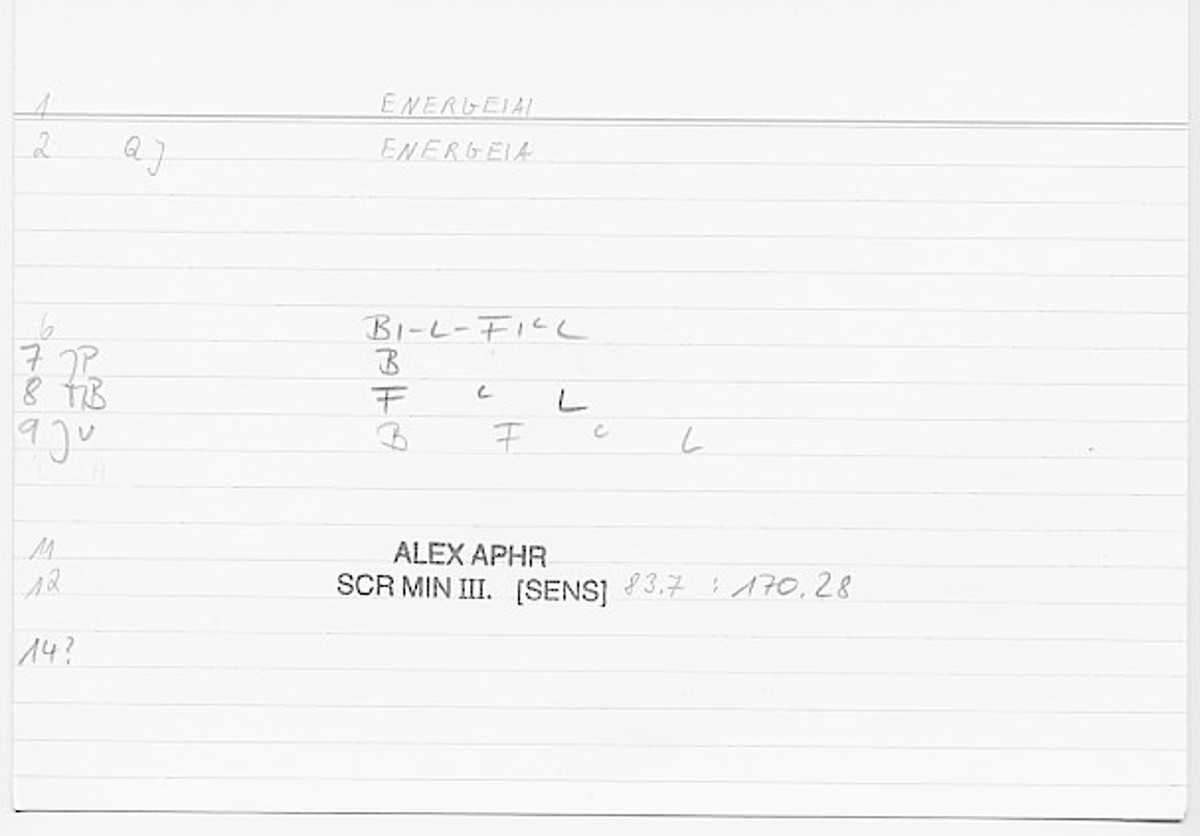 1 ENERGEIAI
2 QJ ENERGEIA
6 BI-L-FI c L
7 JP B
8 F c L
9 JU B F c L
11 ALEX APHR
12 SCR MIN III. [SENS] 83.7 : 170.28
14?